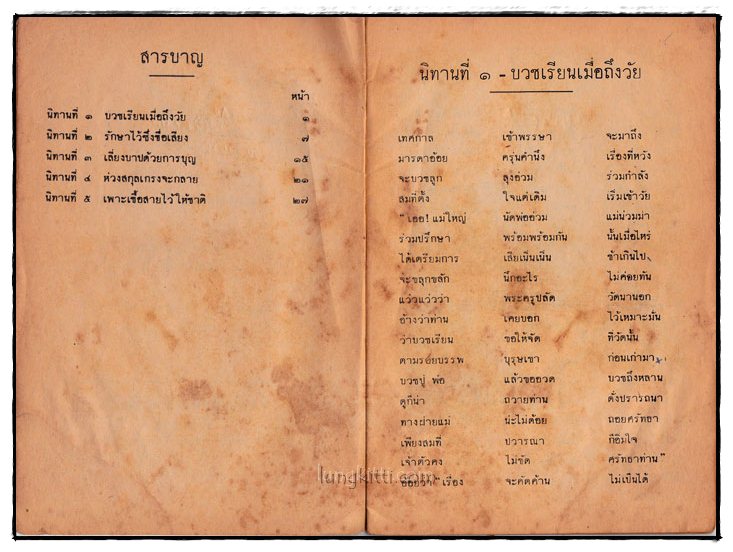 สารบาญ
หน้า
นิทานที่ ๑ บวชเรียนเมื่อถึงวัย ๑
นิทานที่ ๒ รักษาไว้ซึ่งชื่อเสียง ๗
นิทานที่ ๓ เลี่ยงบาปด้วยการบุญ ๑๕
นิทานที่ ๔ ห่วงสกุลเกรงจะกลาย ๒๑
นิทานที่ ๕ เพาะเชื้อสายไว้ให้ชาติ ๒๗
นิทานที่ ๑ - บวชเรียนเมื่อถึงวัย
เทศกาล เข้าพรรษา จะมาถึง
มารดาอ้อย ครุ่นคำนึง เรื่องที่หวัง
จะบวชลูก ลุงอ่วม ร่วมกำลัง
สมที่ตั้ง ใจแต่เดิม เริ่มเข้าวัย
"เออ! แม่ใหญ่ นัดพ่ออ่วม แม่น่วมมา
ร่วมปรึกษา พร้อมพร้อมกัน นั้นเมื่อไหร่
ได้เตรียมการ เสียเนิ่นเนิ่น ช้าเกินไป
จะขลุกขลัก นึกอะไร ไม่ค่อยทัน
แว่วแว่วว่า พระครูปลัด วัดนานอก
อ้างว่าท่าน เคยบอก ไว้เหมาะมั่น
ว่าบวชเรียน ขอให้จัด ที่วัดนั้น
ตามรอยบรรพ บุรุษเขา ก่อนเก่ามา
บวชปู่ พ่อ แล้วขออวด บวชถึงหลาน
ดูกี่น่า ถวายท่าน ดั่งปรารถนา
ทางฝ่ายแม่ น่ะไม่ด้อย ถอยศรัทธา
เพียงสมที่ ปวารณา ก็อิ่มใจ
เจ้าตัวคง ไม่ขัด ศรัทธาท่าน"
อ้อยว่า "เรื่อง จะคัดค้าน ไม่เป็นได้
lungkitti.com